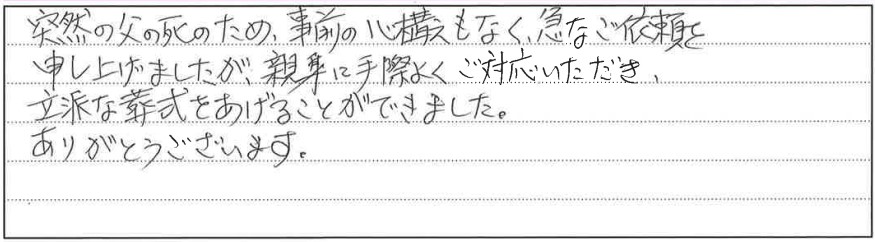 突然の父の死のため、事前の心構えもなく、急なご依頼を
申し上げましたが、親身に手際よくご対応いただき、
立派な葬式をあげることができました。
ありがとうございます。